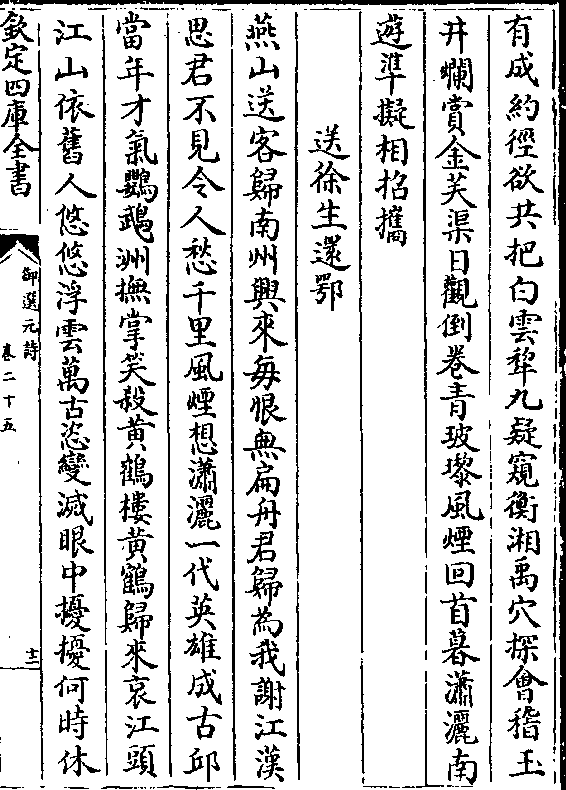 有成約徑欲共把白雲犂九疑窺衡湘禹穴探會稽玉
井爛賞金芙渠日觀倒卷青玻瓈風煙回首暮瀟灑南
遊準擬相招攜
送徐生還鄂
燕山送客歸南州興來每恨無扁舟君歸為我謝江漢
思君不見令人愁千里風煙想瀟灑一代英雄成古邱
當年才氣鸚鵡洲撫掌笑殺黃鶴樓黃鶴歸來哀江頭
江山依舊人悠悠浮雲萬古恣變滅眼中擾擾何時休
欽定四庫全書
御選元詩
卷二十五
十三